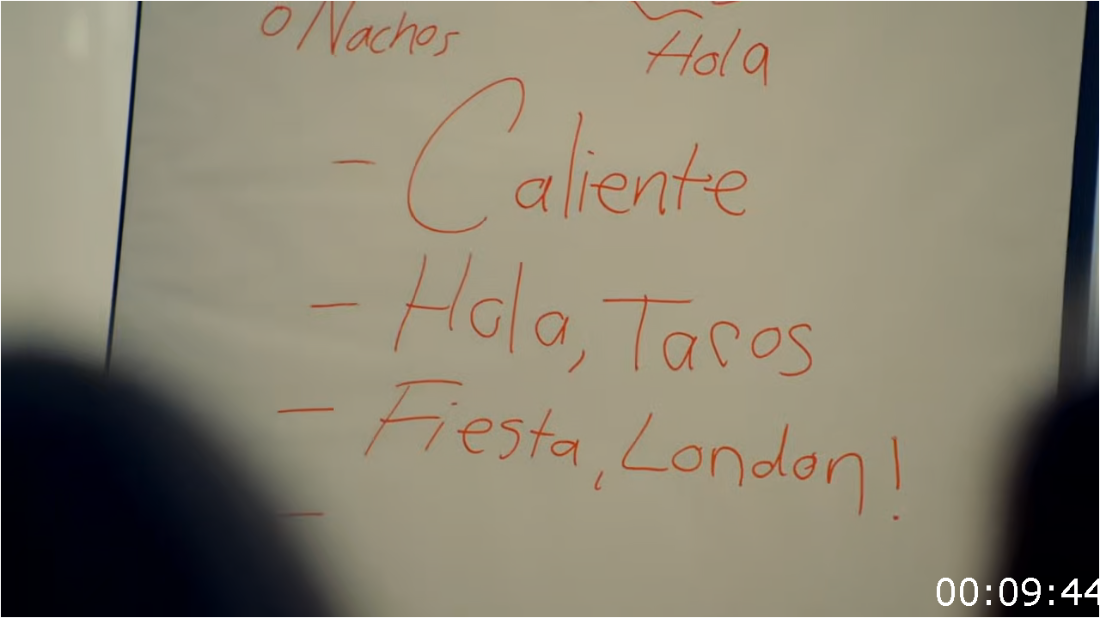 o Nachos
Hola
- Caliente
- Hola, Tacos
- Fiesta, London!
-
00:09:44